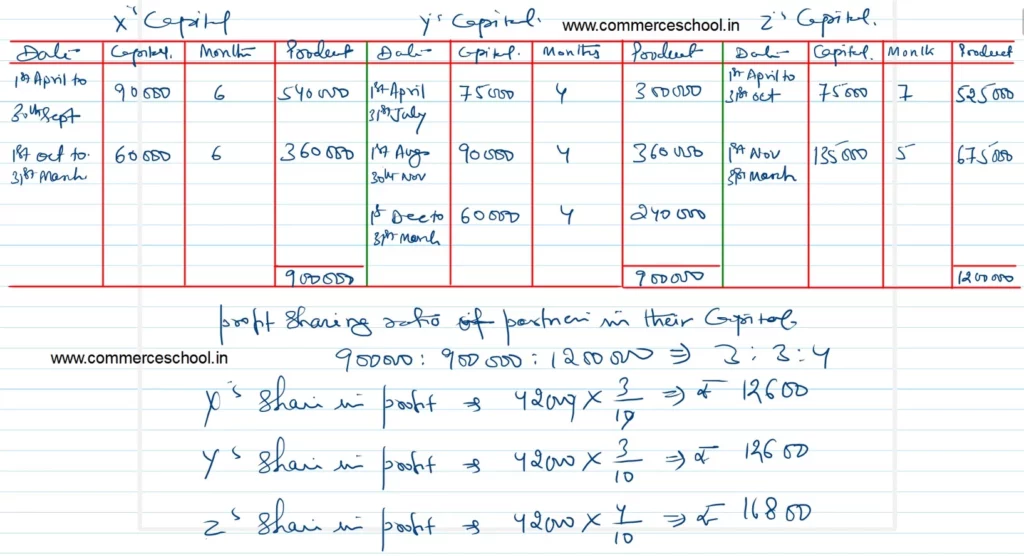 X's Capital Y's Capital. www.commerceschool.in Z's Capital.
Date Capital. Months Product Date Capital. Months Product Date Capital. Month Product
1st April to 30th Sept 90000 6 540000 1st April 31st July 75000 4 300000 1st April to 31st Oct 75000 7 525000
1st Oct to 31st March 60000 6 360000 1st Aug 30th Nov 90000 4 360000 1st Nov 31st March 135000 5 675000
1st Dec to 31st March 60000 4 240000
900000 900000 1200000
profit sharing ratio of partner in their Capital
www.commerceschool.in
900000 : 900000 : 1200000 ⇒ 3 : 3 : 4
X's Share in profit ⇒ 42000 × 3/10 ⇒ ₹ 12600
Y's Share in profit ⇒ 42000 × 3/10 ⇒ ₹ 12600
Z's Share in profit ⇒ 42000 × 4/10 ⇒ ₹ 16800